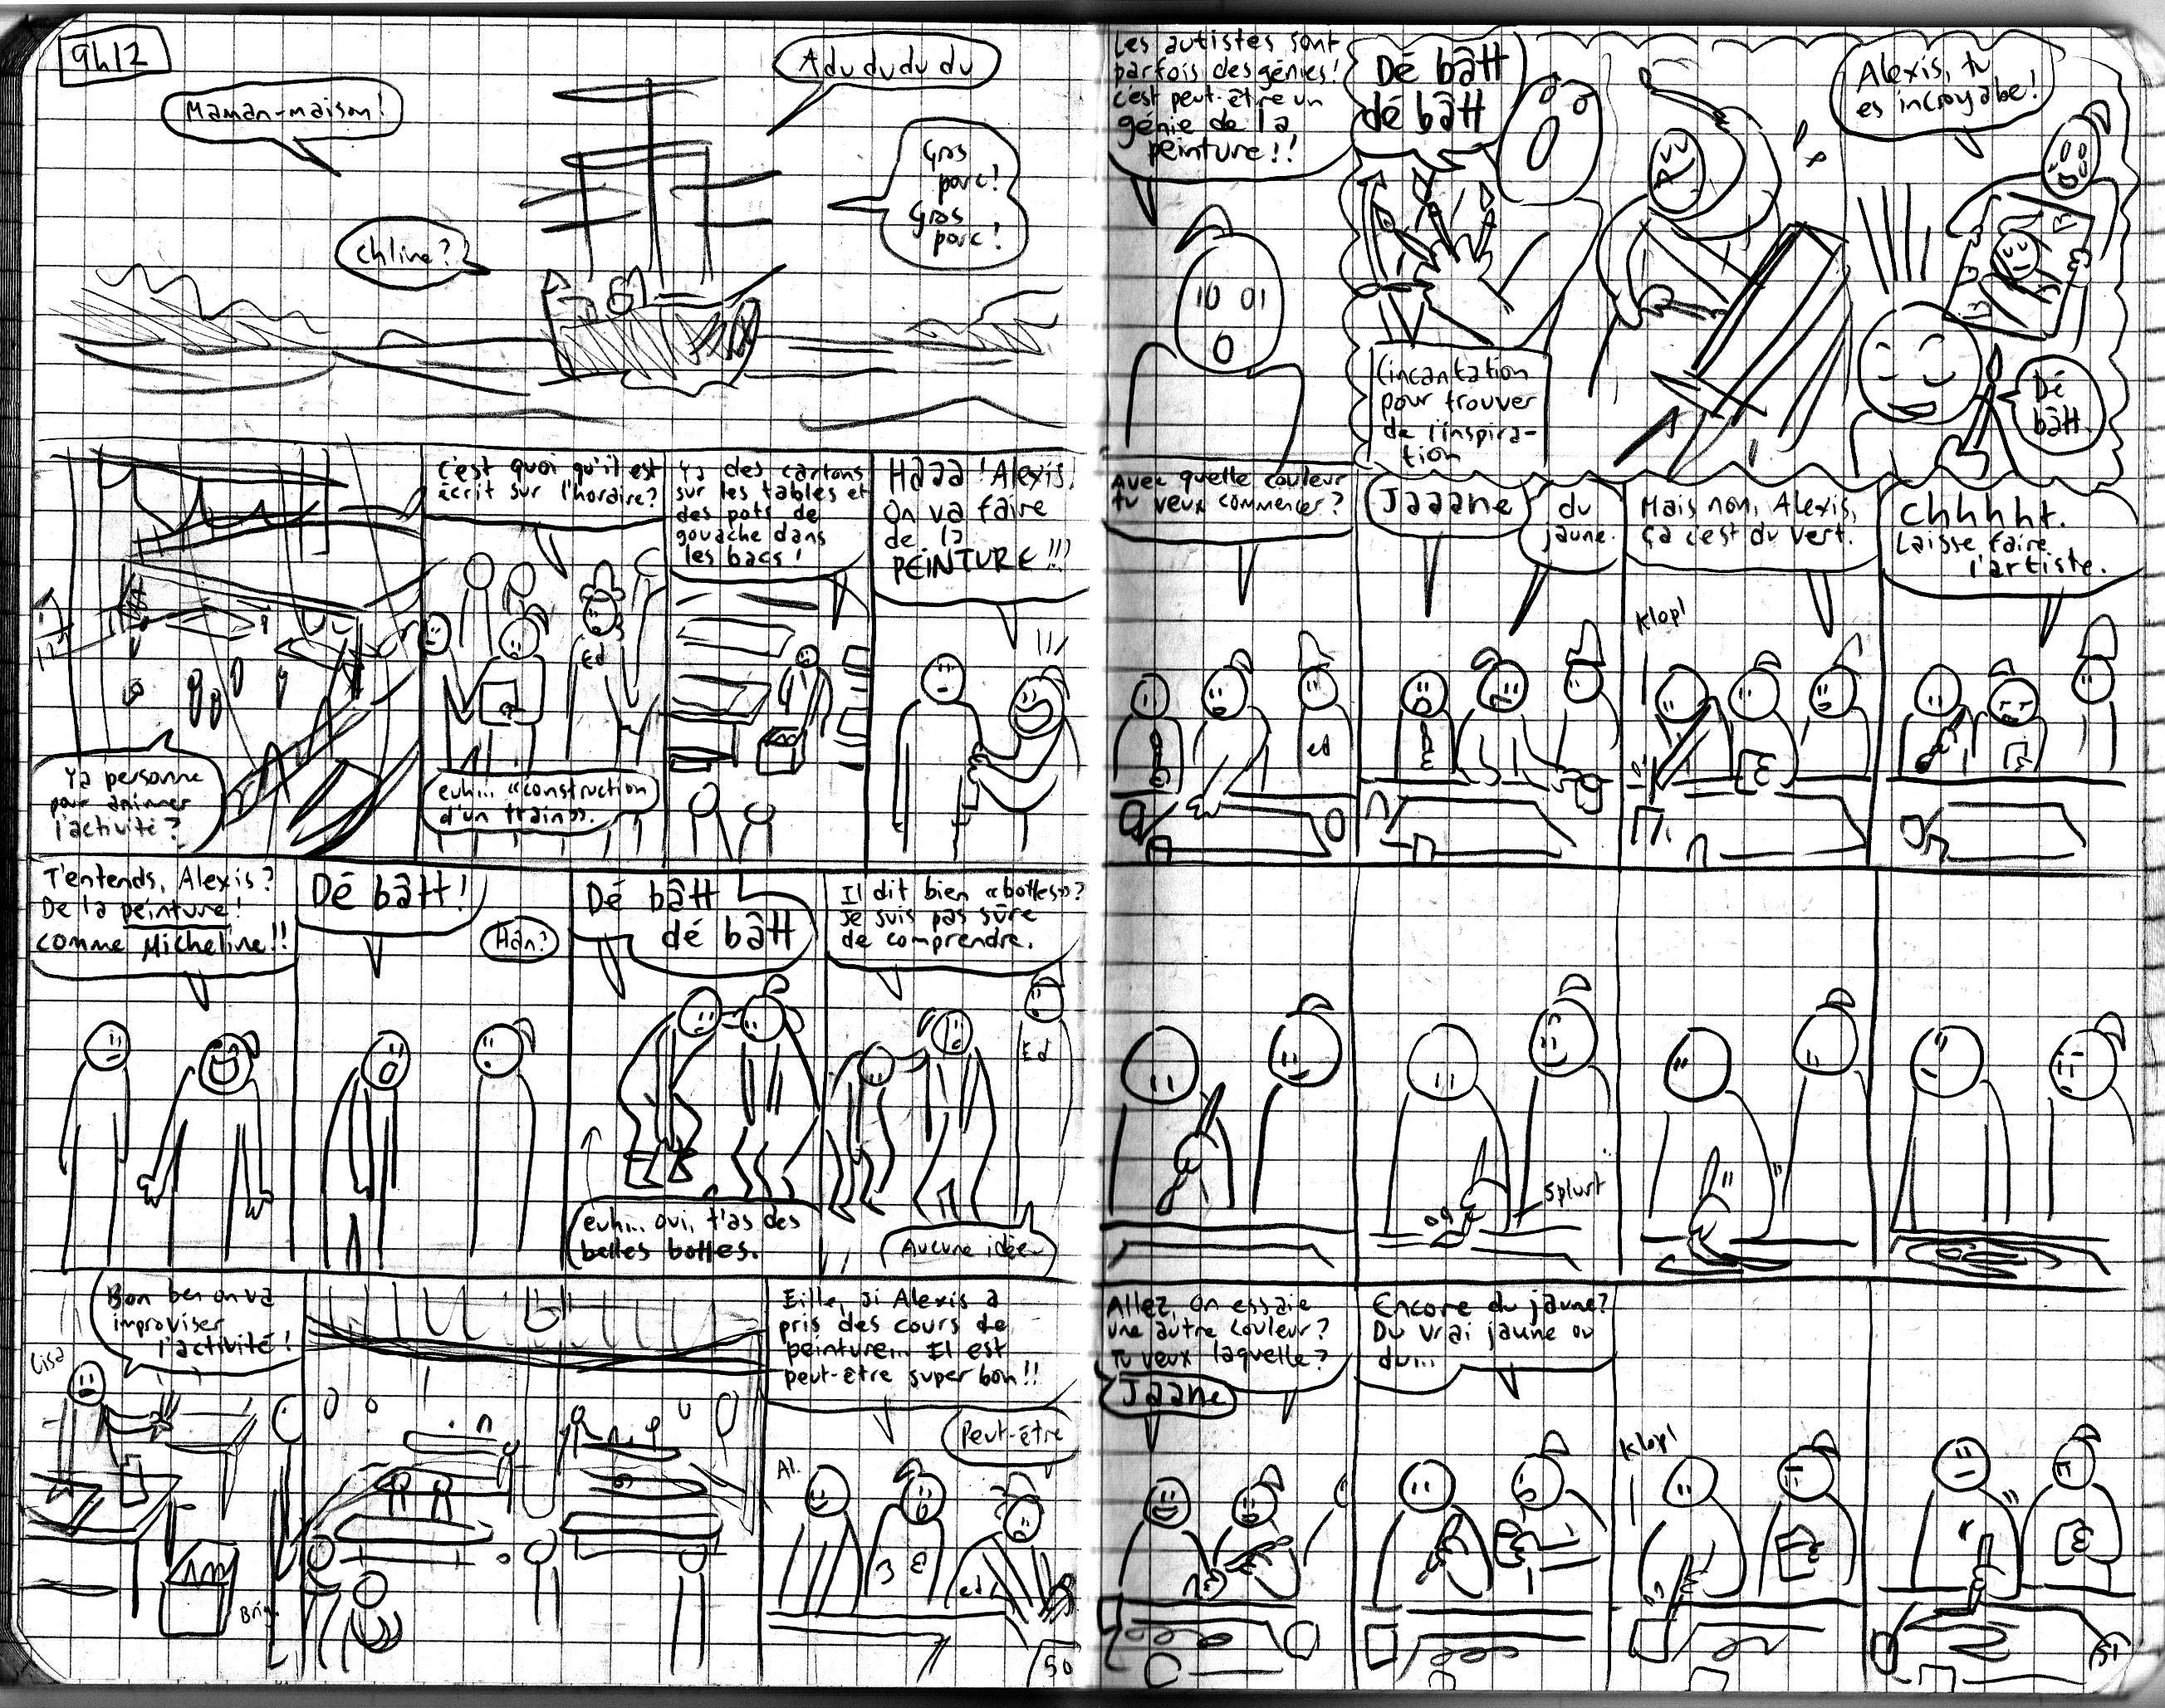 9h12
Maman-maison!
Adudududu
Gros
porc!
Gros
porc!
Chline?
Ya personne
pour animer
l'activité?
C'est quoi qu'il est
écrit sur l'horaire?
Ed
euh... «construction
d'un train».
Ya des cartons
sur les tables et
des pots de
gouache dans
les bacs!
Haaa! Alexis!
On va faire
de la
PEINTURE!!!
T'entends, Alexis?
De la peinture!
comme Micheline!!
Dé bâtt!
Han?
Dé bâtt
dé bâtt
euh... oui, t'as des
belles bottes.
Il dit bien «bottes»?
Je suis pas sûre
de comprendre.
Ed
Aucune idée
Bon ben on va
improviser
l'activité!
Lisa
Brig.
Eille, si Alexis a
pris des cours de
peinture... Il est
peut-être super bon!!
Peut-être
Al.
ed
50
Les autistes sont
parfois des génies!
C'est peut-être un
génie de la
peinture!!
Dé bâtt
dé bâtt
(incantation
pour trouver
de l'inspira-
tion
Alexis, tu
es incroyabe!
Dé
bâtt.
Avec quelle couleur
tu veux commencer?
ed
Jaaane
du
jaune.
Mais non, Alexis,
ça c'est du vert.
Klop!
Chhhht.
Laisse faire
l'artiste.
Splurt
Allez, on essaie
une autre couleur?
Tu veux laquelle?
Jaane
Encore du jaune?
Du vrai jaune ou
du...
Klop!
51